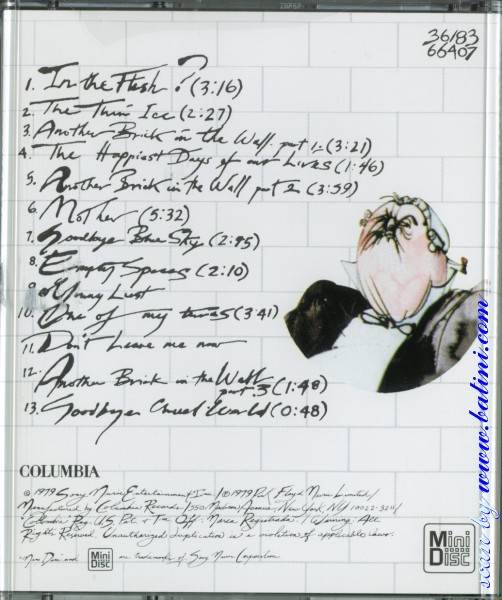 36/83
66407
1. In the Flesh? (3:16)
2. The Thin Ice (2:27)
3. Another Brick in the Wall part 1 (3:21)
4. The Happiest Days of our Lives (1:46)
5. Another Brick in the Wall part 2 (3:59)
6. Mother (5:32)
7. Goodbye Blue Sky (2:45)
8. Empty Spaces (2:10)
9. Young Lust
10. One of my turns (3:41)
11. Don't Leave me now
12. Another Brick in the Wall part 3 (1:48)
13. Goodbye Cruel World (0:48)
COLUMBIA
© 1979 Sony Music Entertainment Inc. / ℗ 1979 Pink Floyd Music Limited/
Manufactured by Columbia Records / 550 Madison Avenue, New York, NY 10022-3211/
"Columbia" Reg. U.S. Pat. & Tm. Off. Marca Registrada. / Warning: All
Rights Reserved. Unauthorized duplication is a violation of applicable laws.
Mini Disc and Mini Disc are trademarks of Sony Corporation
Mini
Disc
scans by www.batini.com